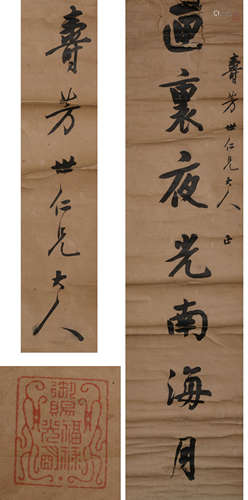 壽芳世仁兄大人正
画裏夜光南海月
壽芳世仁兄大人